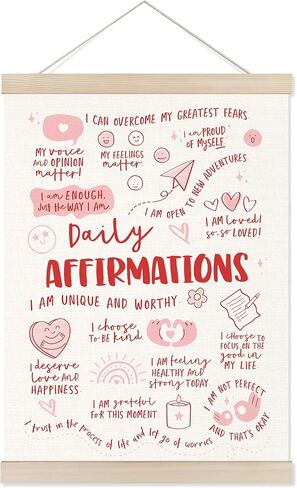 I CAN OVERCOME MY GREATEST FEARS.
MY VOICE
AND OPINION
matter!
MY FEELINGS
matter.
I am PROUD
OF MYSELF.
I am ENOUGH,
JUST THE WAY I AM.
I AM OPEN TO NEW ADVENTURES.
I AM LOVED!
SO, SO LOVED!
Daily
AFFIRMATIONS
I AM UNIQUE AND WORTHY.
I choose
TO BE KIND.
I CHOOSE TO
FOCUS ON THE
good IN
MY LIFE.
I deserve
LOVE AND
HAPPINESS.
I AM FEELING
HEALTHY AND
strong TODAY.
I AM grateful
FOR THIS MOMENT.
I AM NOT PERFECT
AND THAT'S OKAY.
I trust in the process of life and let go of worries.